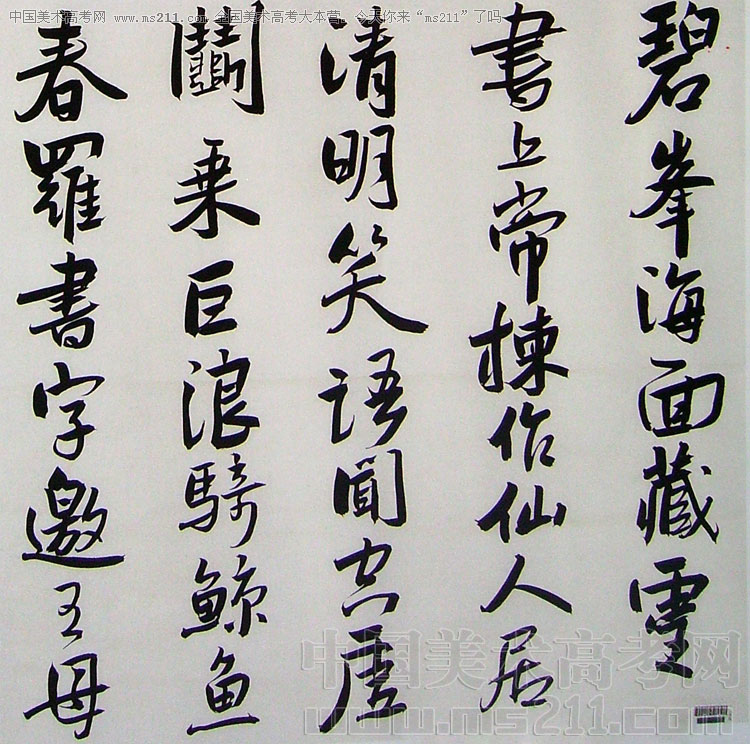 中国美术高考网 www.ms211.com 全国美术高考大本营。今天你来“ms211”了吗
碧峯海面藏靈
書上帝揀作仙人居
清明笑語聞空虛
鬭乘巨浪騎鯨魚
春羅書字邀王母
中国美术高考网
www.ms211.com